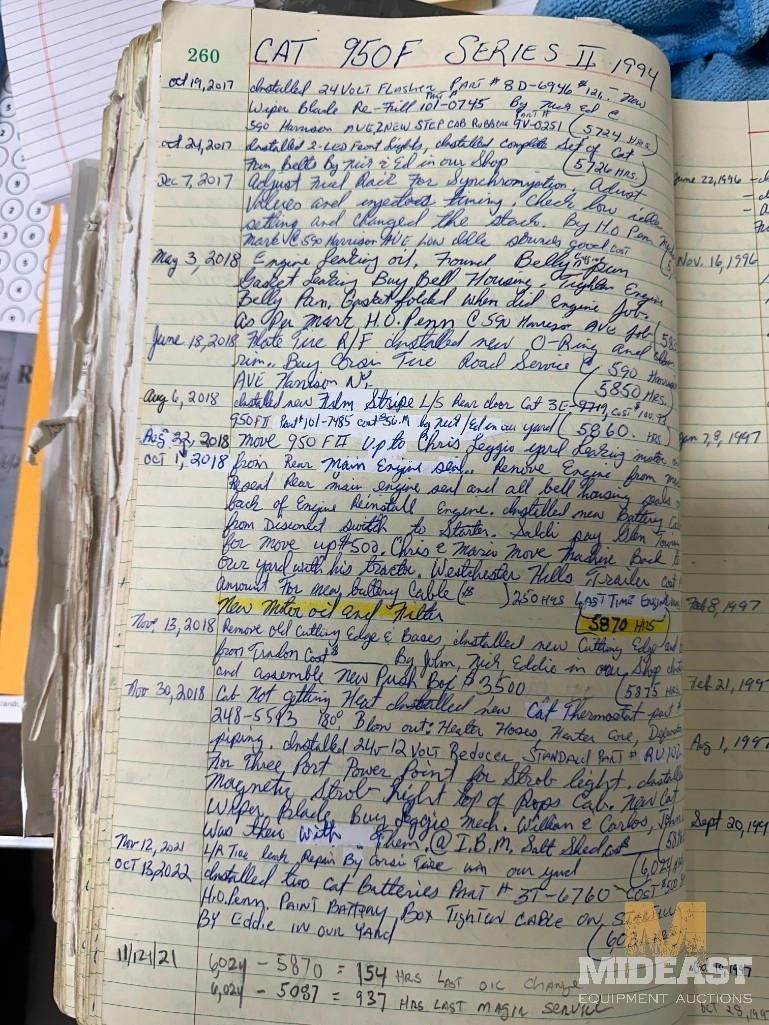 260 CAT 950F SERIES II 1994
Oct 19, 2017 Installed 24 VOLT FLASHER PART # 8D-6946 New
Wiper Blade Re-Fill 101-0745 By Nick Ed @
590 Harrison AVE, 2 NEW STEP CAB RUBBER PART # 9V-0251 (5724 HRS.
Oct 24, 2017 Installed 2-LED Front Lights, installed complete Set of Cat
Fan Belts By Nick & Ed in our Shop (5726 HRS.
Dec 7, 2017 Adjust Fuel Rack For Synchronization, Adjust
Valves and injectors timing, Check low idle
setting and changed the stack. By H.O. Penn
Mark @ 590 Harrison AVE Low Idle sounds good Cost
May 3, 2018 Engine leaking oil, Found Belly Pan
Gasket Leaking Buy Bell Housing. Tighten Engine
Belly Pan. Gasket folded when did Engine Job.
as Per Mark H.O. Penn @ 590 Harrison AVE Job
June 18, 2018 Flate Tire R/F Installed new O-Ring and
rim. Buy Corsi Tire Road Service @ 590 Harrison
AVE Harrison NY. (5850 HRS.
Aug 6, 2018 Installed new Film Stripe L/S Rear door Cat 3E-9719 Cost
950 FII Part # 101-7485 cost by Nick / Ed in our yard (5860. HRS
Aug 22, 2018 Move 950 FII Up to Chris Leggio yard Leaking motor
Oct 1, 2018 from Rear Main Engine seal. Remove Engine from
Reseal Rear main engine seal and all bell housing
back of Engine Reinstall Engine. Installed new Battery
from Disconect Switch to Starter. pay
for Move up $500. Chris & Mario Move Machine Back to
our yard with his tractor. Westchester Hills Trailer Cost
amount For new battery Cable ($ ) 250 HRS LAST TIME ENGINE
New Motor oil and Filter (5870 HRS
Nov. 13, 2018 Remove old Cutting Edge & Bases, installed new Cutting Edge and
from Cost $ By John, Nick Eddie in our Shop
and assemble New Push Box $3500 (5875 HRS
Nov 30, 2018 Cab Not getting Heat installed new Cat Thermostat part #
248-5513 180°, Blow out: Heater Hoses, Heater Core,
piping. Installed 24v-12 VOLT Reducer STANDARD PART # RU102
For Three Port Power Point for Strob light. Installed
Magnetic Strob Right Top of Rops Cab. New Cat
Wiper Blade Buy Leggio Mech. William & Carlos, John
was there With them. @ I.B.M. Salt Shed
Nov 12, 2021 L/R Tire leak, Repair By Corsi Tire in our yard (6,024
OCT 13, 2022 Installed two Cat Batteries PART # 3T-6760 COST
H.O. Penn. PAINT BATTERY, BOX TIGHTEN CABLE ON
BY Eddie IN OUR YARD
11/12/21 6,024 - 5870 = 154 HRS LAST OIL CHANGE
6,024 - 5087 = 937 HRS LAST MAJOR SERVICE
June 22, 1996
Nov. 16, 1996
Jan 7, 8, 1997
Feb 8, 1997
Feb 21, 199
Aug 1, 1997
Sept 20, 199
OCT 28, 199
MIDEAST
EQUIPMENT AUCTIONS